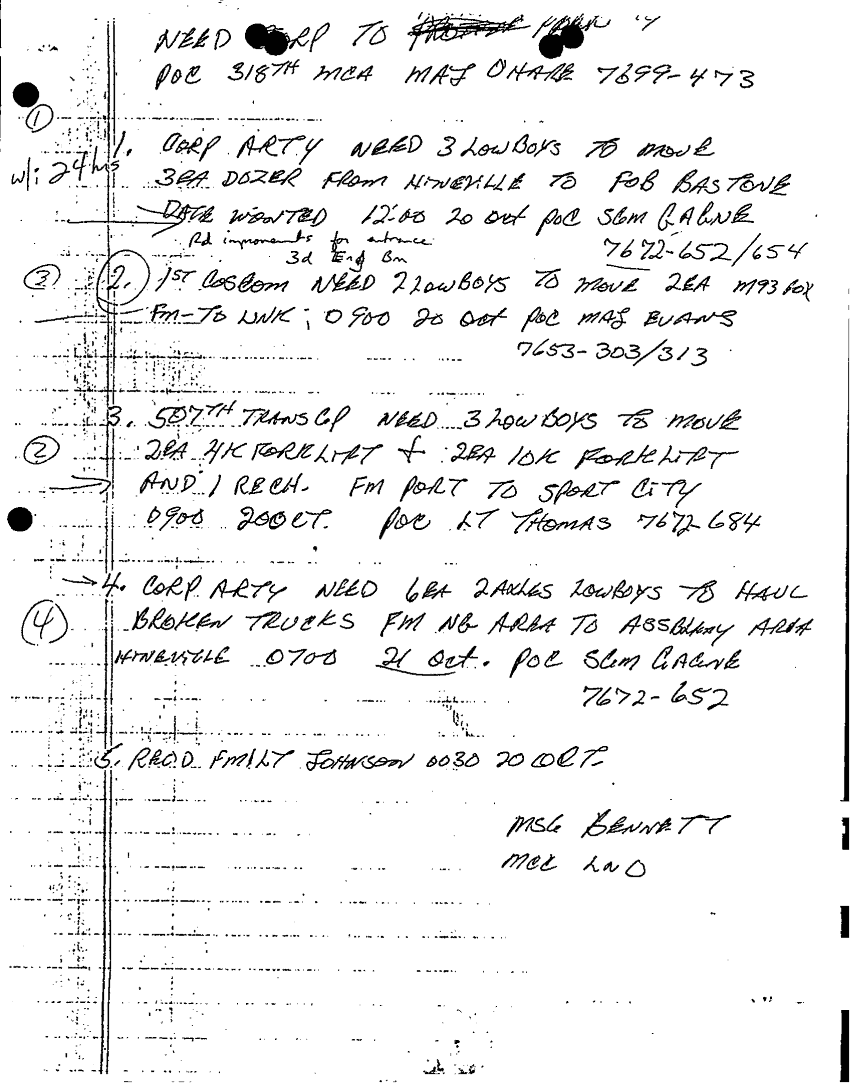 NEED CORP TO
POC 318TH MCA MAJ OHARE 7699-473
①
1. CORP ARTY NEED 3 LOWBOYS TO MOVE
w/i 24 hrs
3EA DOZER FROM HINEVILLE TO FOB BASTONE
DATE WANTED 12:00 20 Oct POC SGM GAGNE
Rd improments for entrance
7672-652/654
3d Eng Bn
③ 2. 1ST COSCOM NEED 2 LOWBOYS TO MOVE 2EA M93 FOX
FM-TO UNK; 0900 20 Oct POC MAJ EVANS
7653-303/313
3. 507TH TRANS GP NEED 3 LOWBOYS TO MOVE
② 2EA 4K FORKLIFT + 2EA 10K FORKLIFT
AND 1 RECH. FM PORT TO SPORT CITY
0900 20 OCT. POC LT THOMAS 7672-684
4. CORP ARTY NEED 6EA 2AXLES LOWBOYS TO HAUL
④ BROKEN TRUCKS FM NG AREA TO ASSBLMY AREA
HINEVILLE 0700 21 Oct. POC SGM GAGNE
7672-652
5. RECD FM 1LT JOHNSON 0030 20 OCT.
MSG BENNETT
MCC LNO